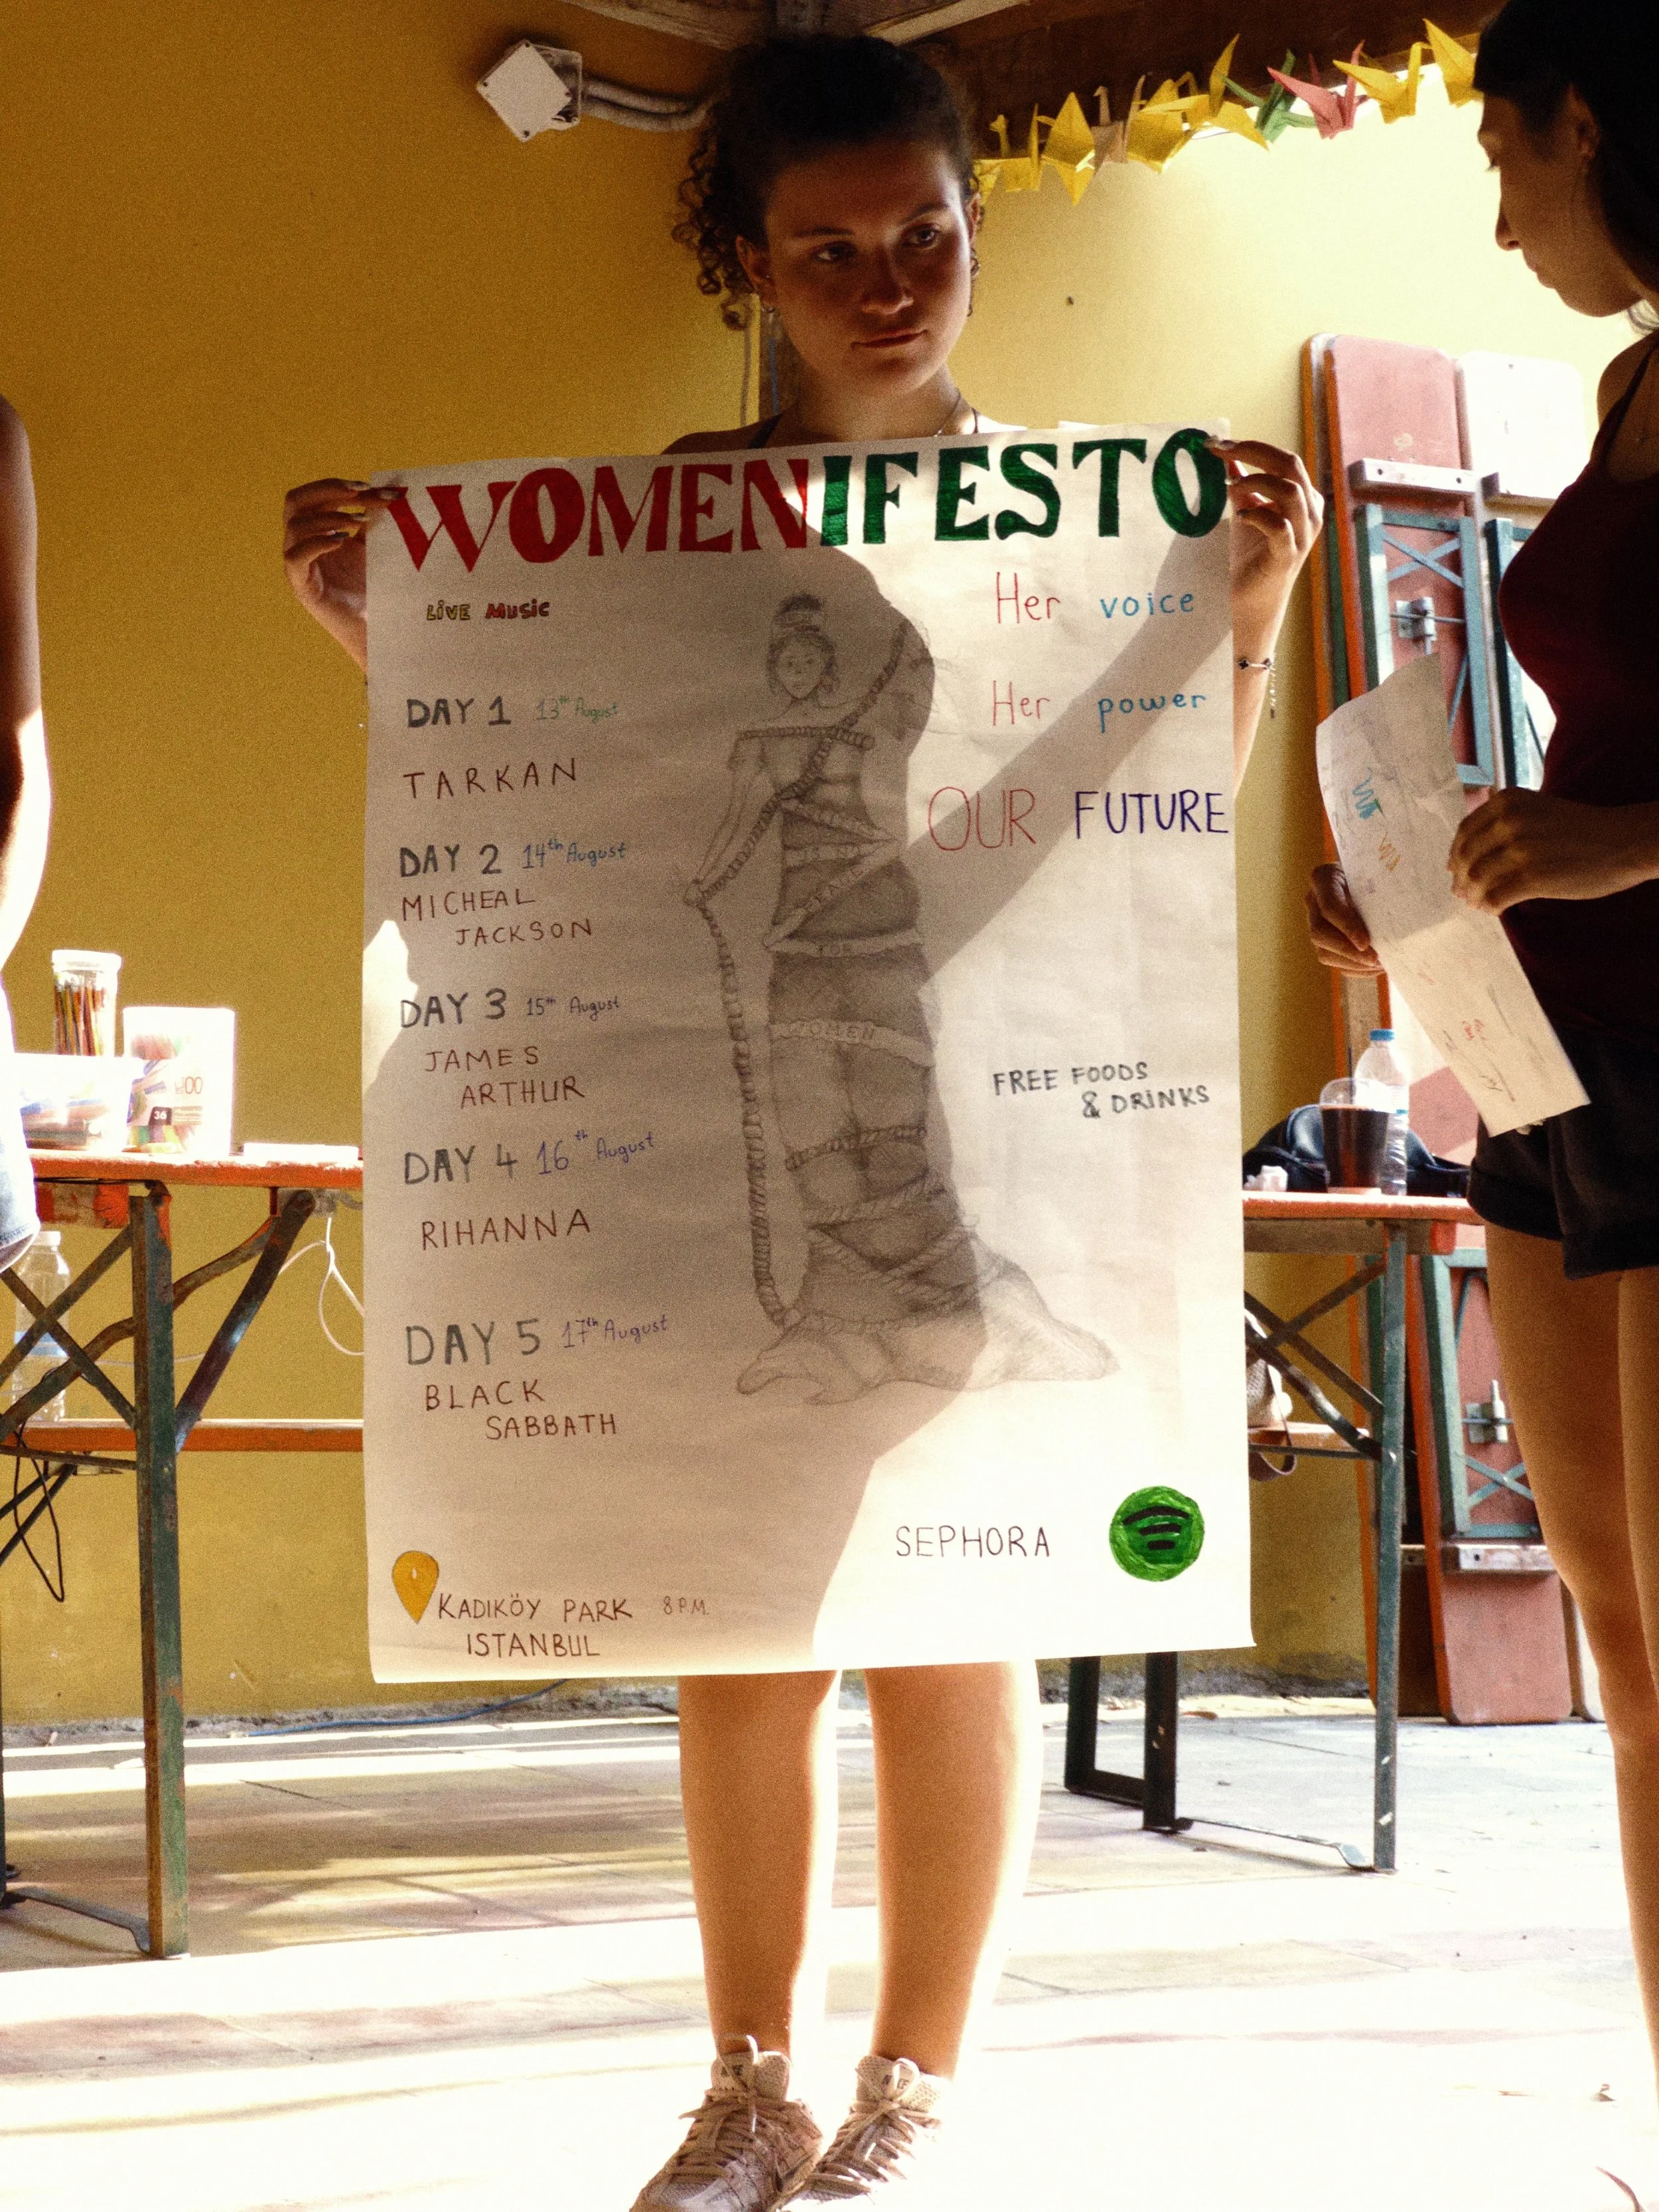 WOMENIFESTO
LIVE MUSIC
DAY 1 13th August
TARKAN
DAY 2 14th August
MICHEAL
JACKSON
DAY 3 15th August
JAMES
ARTHUR
DAY 4 16th August
RIHANNA
DAY 5 17th August
BLACK
SABBATH
KADIKÖY PARK 8 P.M.
ISTANBUL
Her voice
Her power
OUR FUTURE
FOR
WOMEN
FREE FOODS
& DRINKS
SEPHORA
36